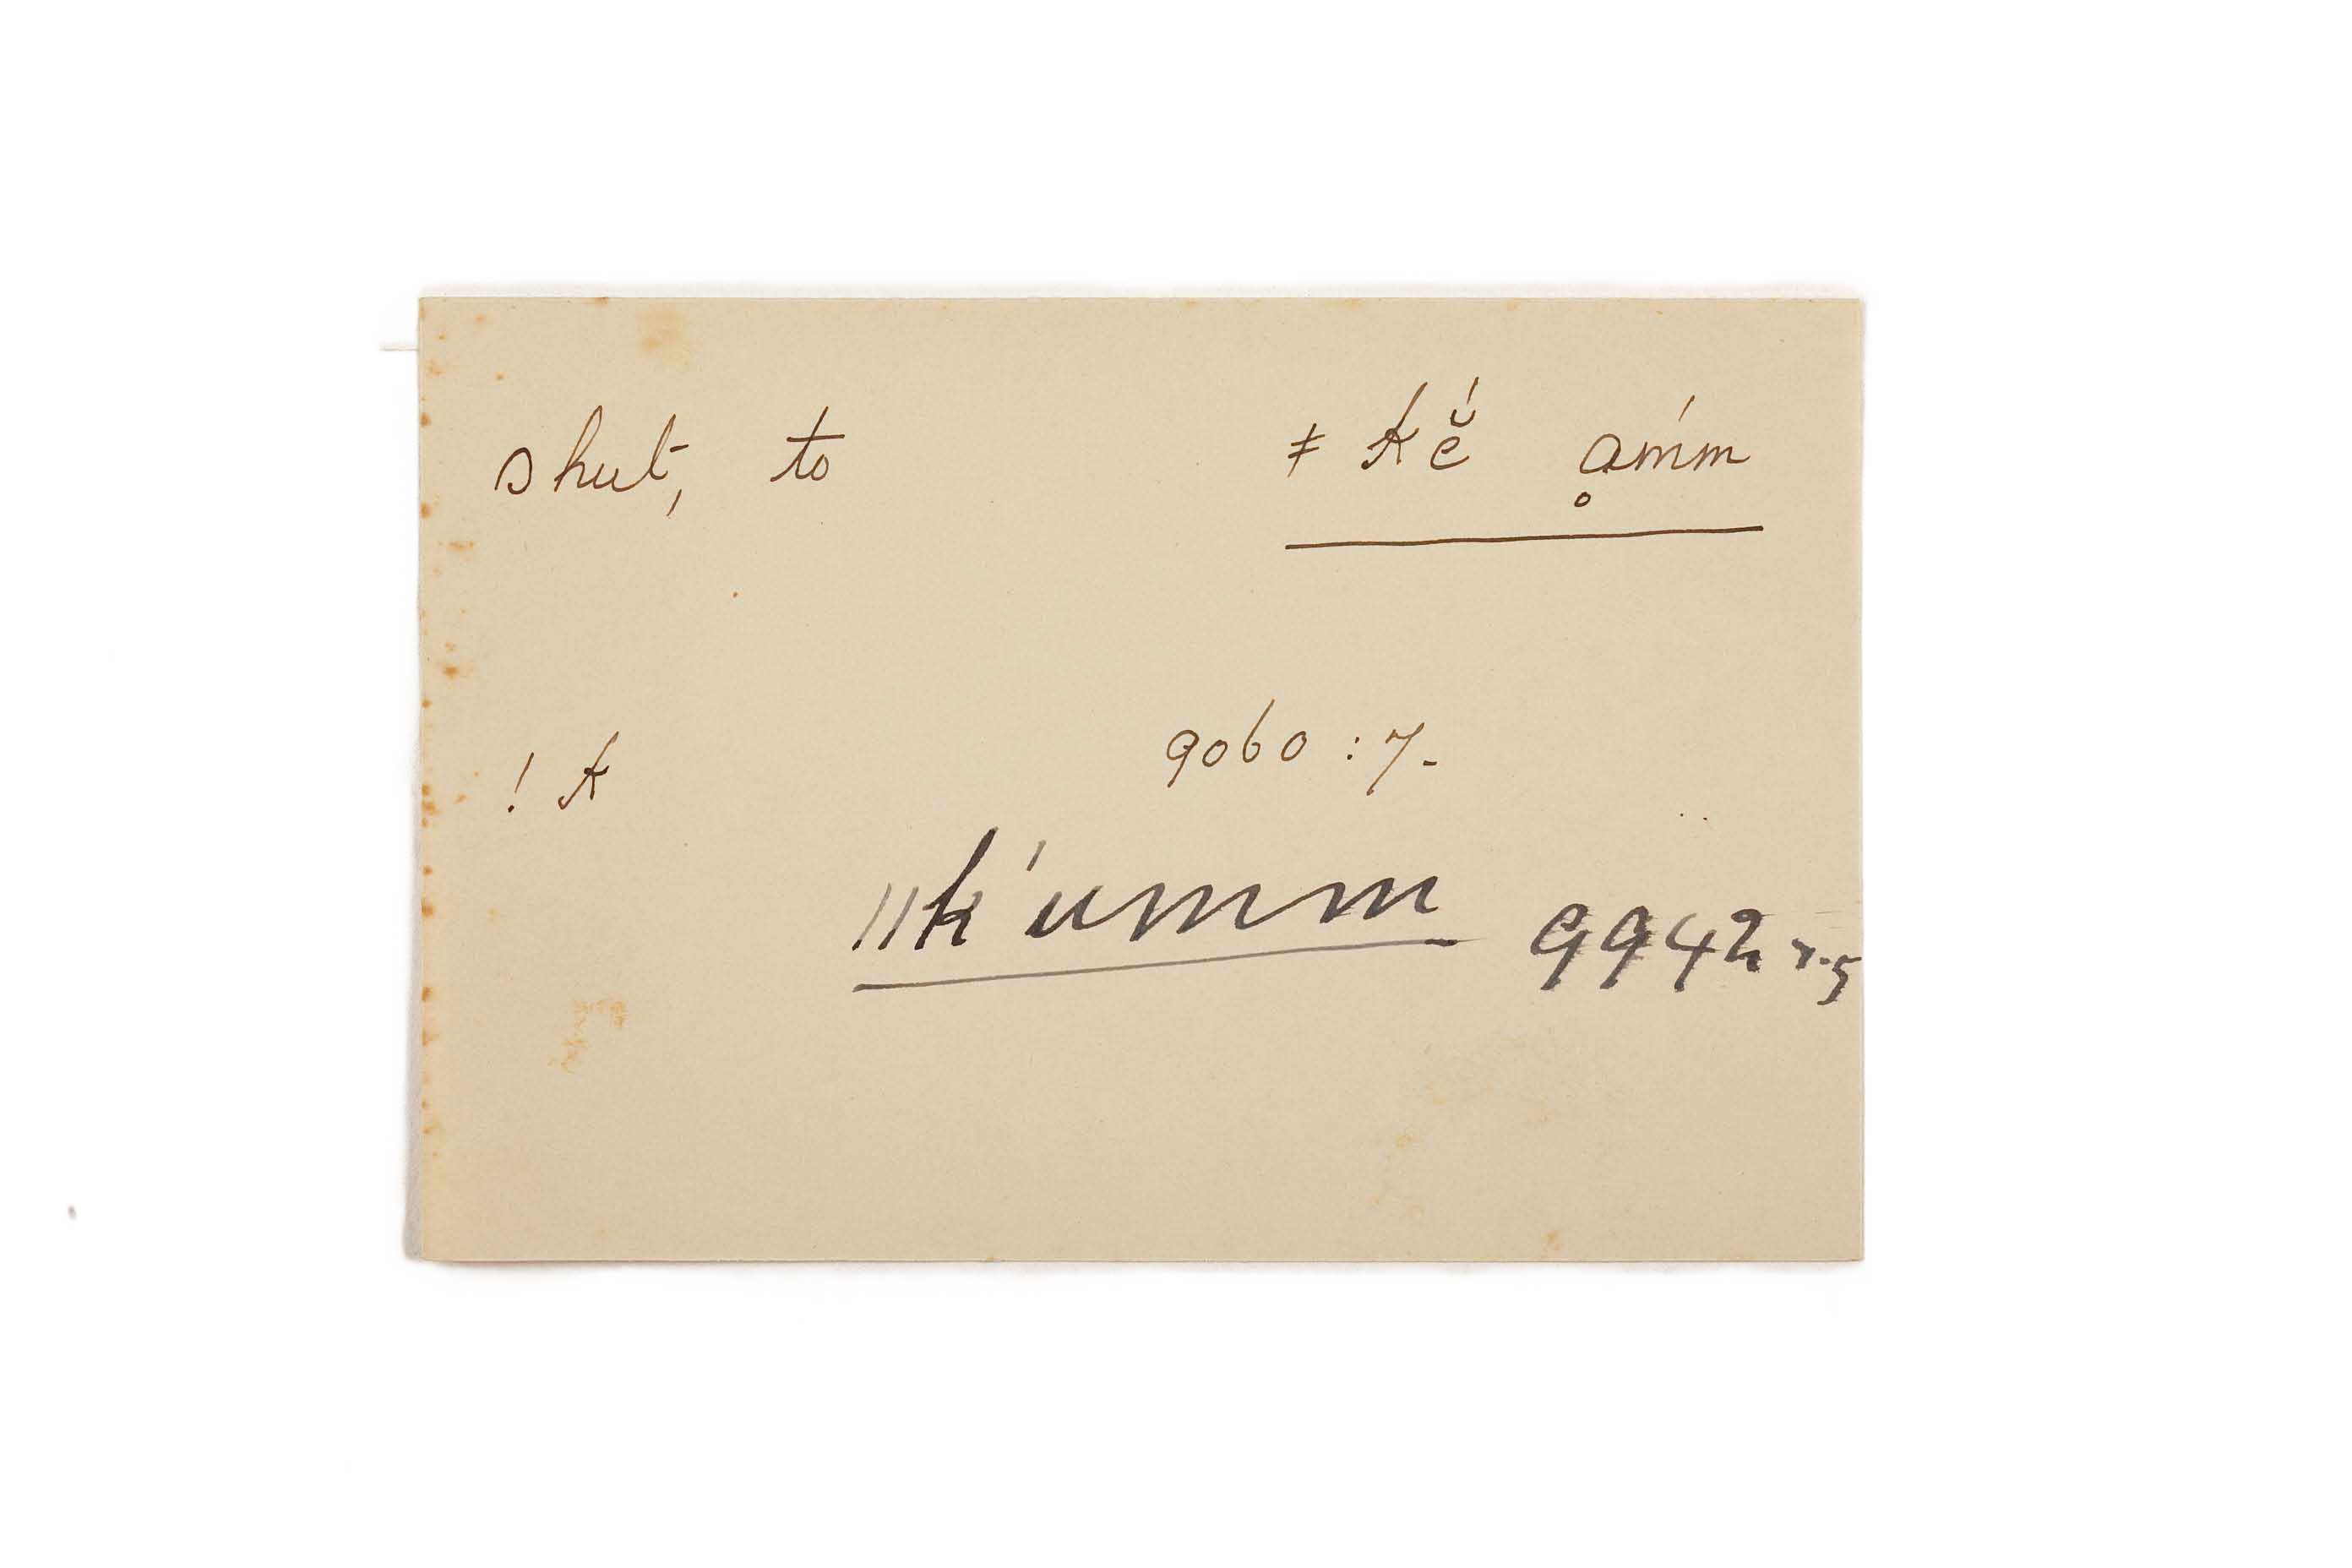 shut, to ǂ kĕ́ ḁḿm
! k 9060 : 7.
||k'umm 9942 r.5